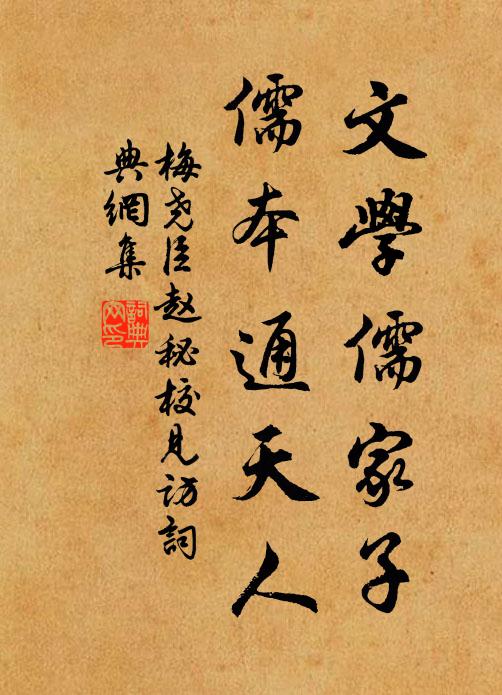 文學儒家子
儒本通天人
梅尧臣赵秘校見訪詞
典網集
詞典
网印